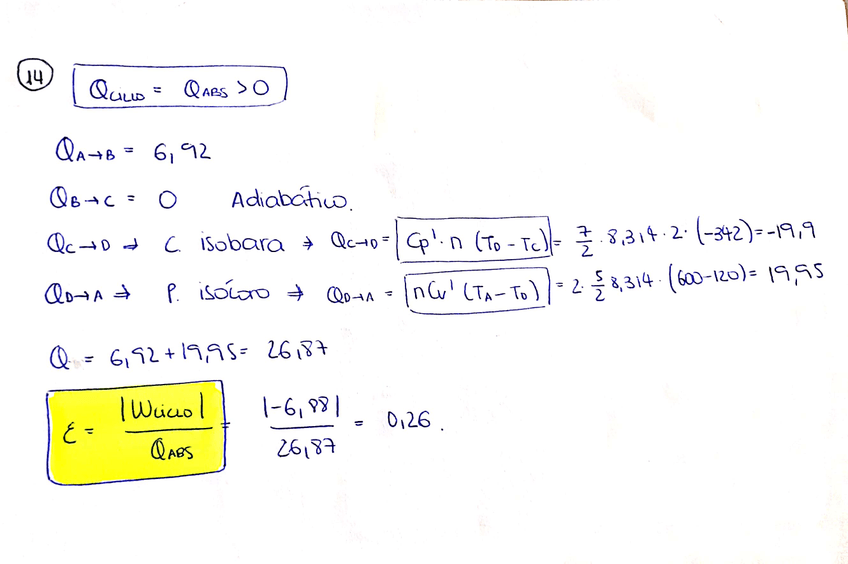 14
QCICLO = QABS > 0
QA→B = 6,92
QB→C = 0 Adiabático.
QC→D ⇒ C. isobara → QC→D = Cp'·n (TD − TC) = 7/2 · 8,314 · 2 · (−342) = −19,9
QD→A ⇒ P. isócoro ⇒ QD→A = nCv' (TA − TD) = 2 · 5/2 8,314 · (600−120) = 19,95
Q = 6,92 + 19,95 = 26,87
ε = |WCICLO| / QABS = |−6,98| / 26,87 = 0,26.